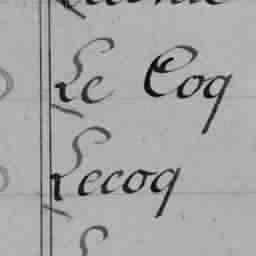 Le Coq
Lecoq